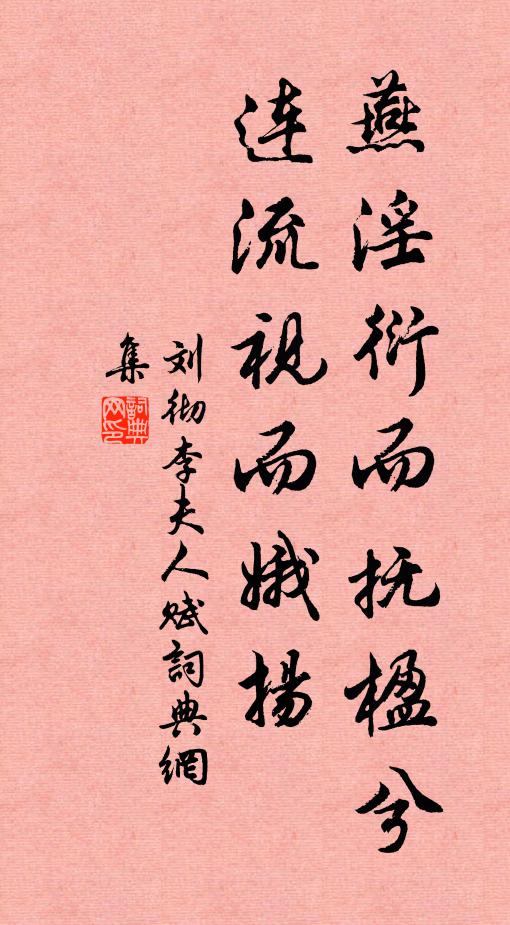 燕淫衍而抚楹兮
连流视而娥揚
刘彻李夫人赋詞典網
集
詞典网印